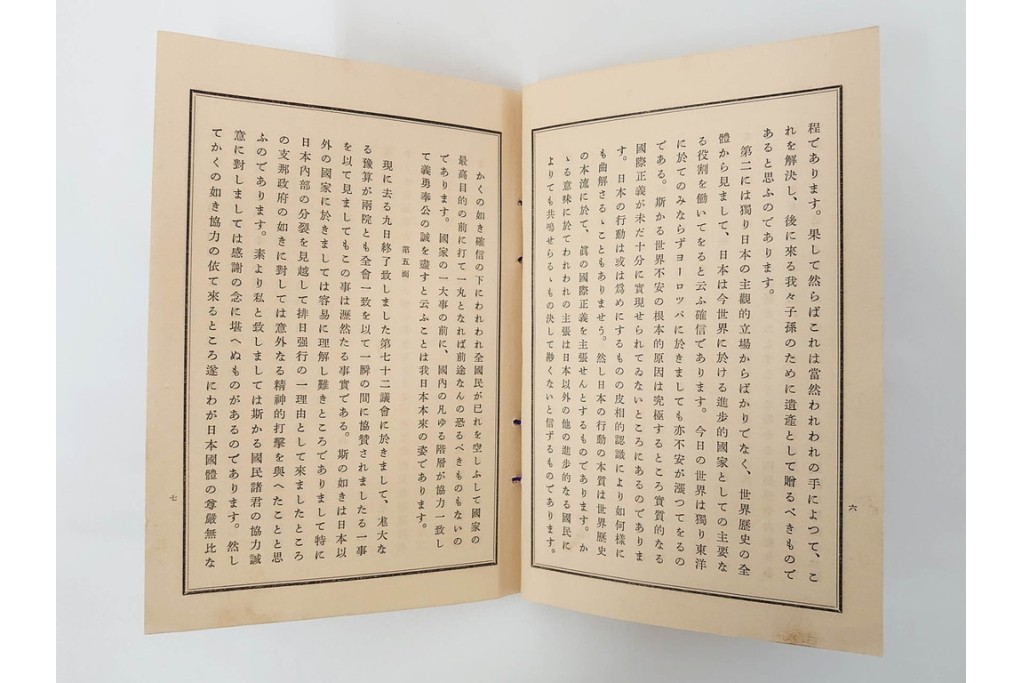 程であります。果して然らばこれは當然われわれの手によつて、こ
れを解決し、後に來る我々子孫のために遺產として贈るべきもので
あると思ふのであります。
第二には獨り日本の主觀的立場からばかりでなく、世界歷史の全
體から見まして、日本は今世界に於ける進步的國家としての主要な
る役割を働いてをると云ふ確信であります。今日の世界は獨り東洋
に於てのみならずヨーロツパに於きましても亦不安が漲つてをるの
である。斯かる世界不安の根本的原因は究極するところ實質的なる
國際正義が未だ十分に實現せられてゐないところにあるのでありま
す。日本の行動は或は爲めにするものの皮相的認識により如何樣に
も曲解さるゝこともありませう。然し日本の行動の本質は世界歷史
の本流に於て、眞の國際正義を主張せんとするものであります。か
ゝる意味に於てわれわれの主張は日本以外の他の進步的なる國民に
よりても共鳴せらるゝもの決して尠くないと信ずるものであります。
六
かくの如き確信の下にわれわれ全國民が已れを空しふして國家の
最高目的の前に打て一丸となれば前途なんの恐るべきものもないの
であります。國家の一大事の前に、國內の凡ゆる階層が協力一致し
て義勇奉公の誠を盡すと云ふことは我日本本來の姿であります。
第五面
現に去る九日終了致しました第七十二議會に於きまして、尨大な
る豫算が兩院とも全會一致を以て一瞬の間に協贊されましたる一事
を以て見ましてもこの事は歷然たる事實である。斯の如きは日本以
外の國家に於きましては容易に理解し難きところでありまして特に
日本內部の分裂を見越して排日强行の一理由として來ましたところ
の支那政府の如きに對しては意外なる精神的打擊を與へたことと思
ふのであります。素より私と致しましては斯かる國民諸君の協力誠
意に對しましては感謝の念に堪へぬものがあるのであります。然し
てかくの如き協力の依て來るところ遂にわが日本國體の尊嚴無比な
七